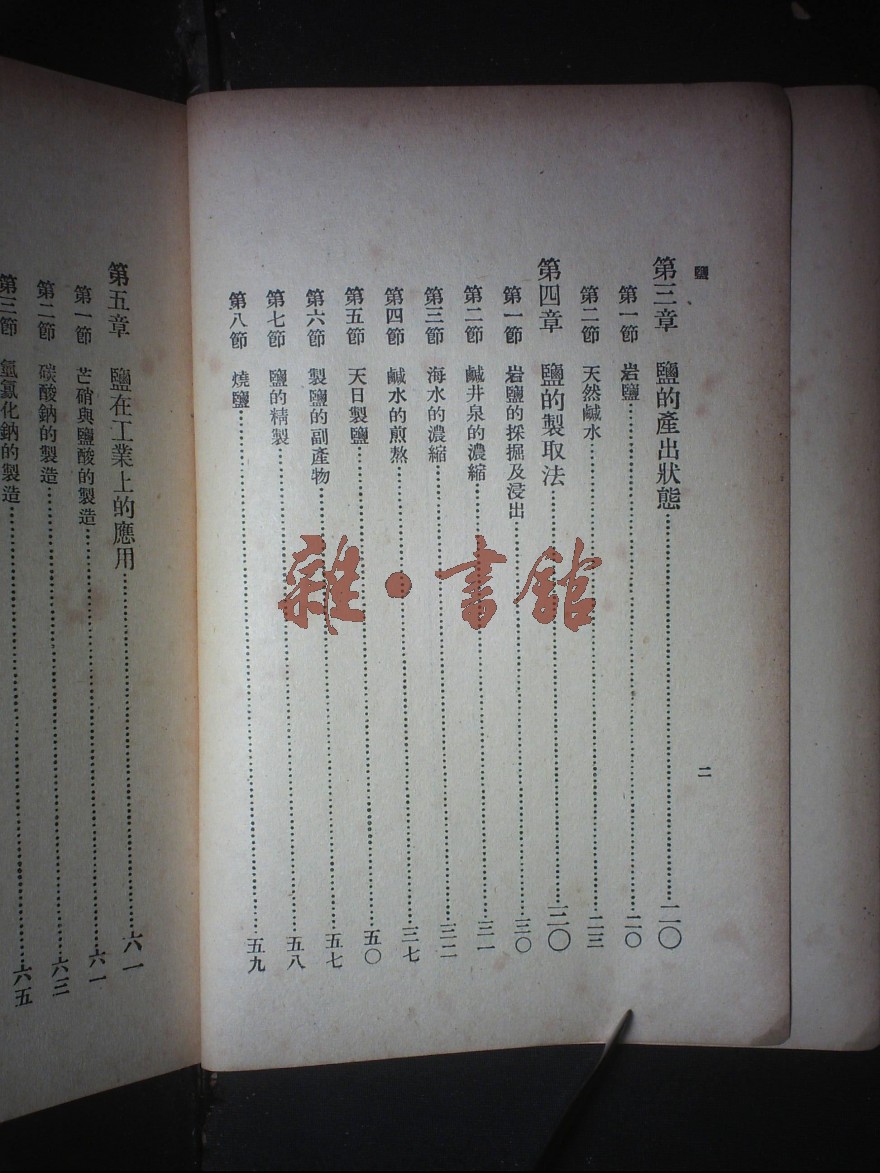 鹽
二
第三章 鹽的產出狀態……二〇
第一節 岩鹽……二〇
第二節 天然鹹水……二三
第四章 鹽的製取法……三〇
第一節 岩鹽的採掘及浸出……三〇
第二節 鹹井泉的濃縮……三一
第三節 海水的濃縮……三二
第四節 鹹水的煎熬……三七
第五節 天日製鹽……五〇
第六節 製鹽的副產物……五七
第七節 鹽的精製……五八
第八節 燒鹽……五九
第五章 鹽在工業上的應用……六一
第一節 芒硝與鹽酸的製造……六一
第二節 碳酸鈉的製造……六三
第三節 氫氧化鈉的製造……六五
雜·書館